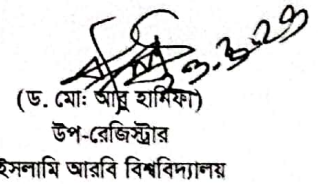 ২৩.৩.২৩
(ড. মোঃ আবু হানিফা)
উপ-রেজিস্ট্রার
ইসলামি আরবি বিশ্ববিদ্যালয়